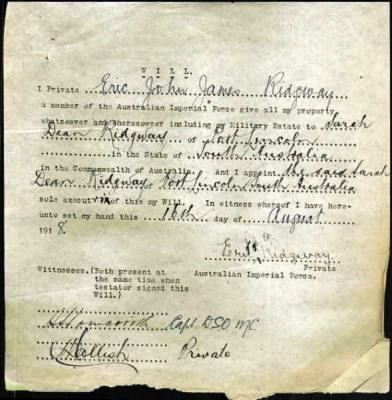 WILL.
I Private Eric John James Ridgway
a member of the Australian Imperial Force give all my property
whatsoever and wheresoever including my Military Estate to Sarah
Dean Ridgway of Port Lincoln
in the State of South Australia
in the Commonwealth of Australia. And I appoint the said Sarah
Dean Ridgway of Port Lincoln South Australia
sole executrix of this my Will. In witness whereof I have here-
unto set my hand this 16th day of August
1918.
Ridgway
Private
Wittnesses. (Both present at Australian Imperial Force.
the same time when
testator signed this
Will.)
Capt. DSO MC
Private